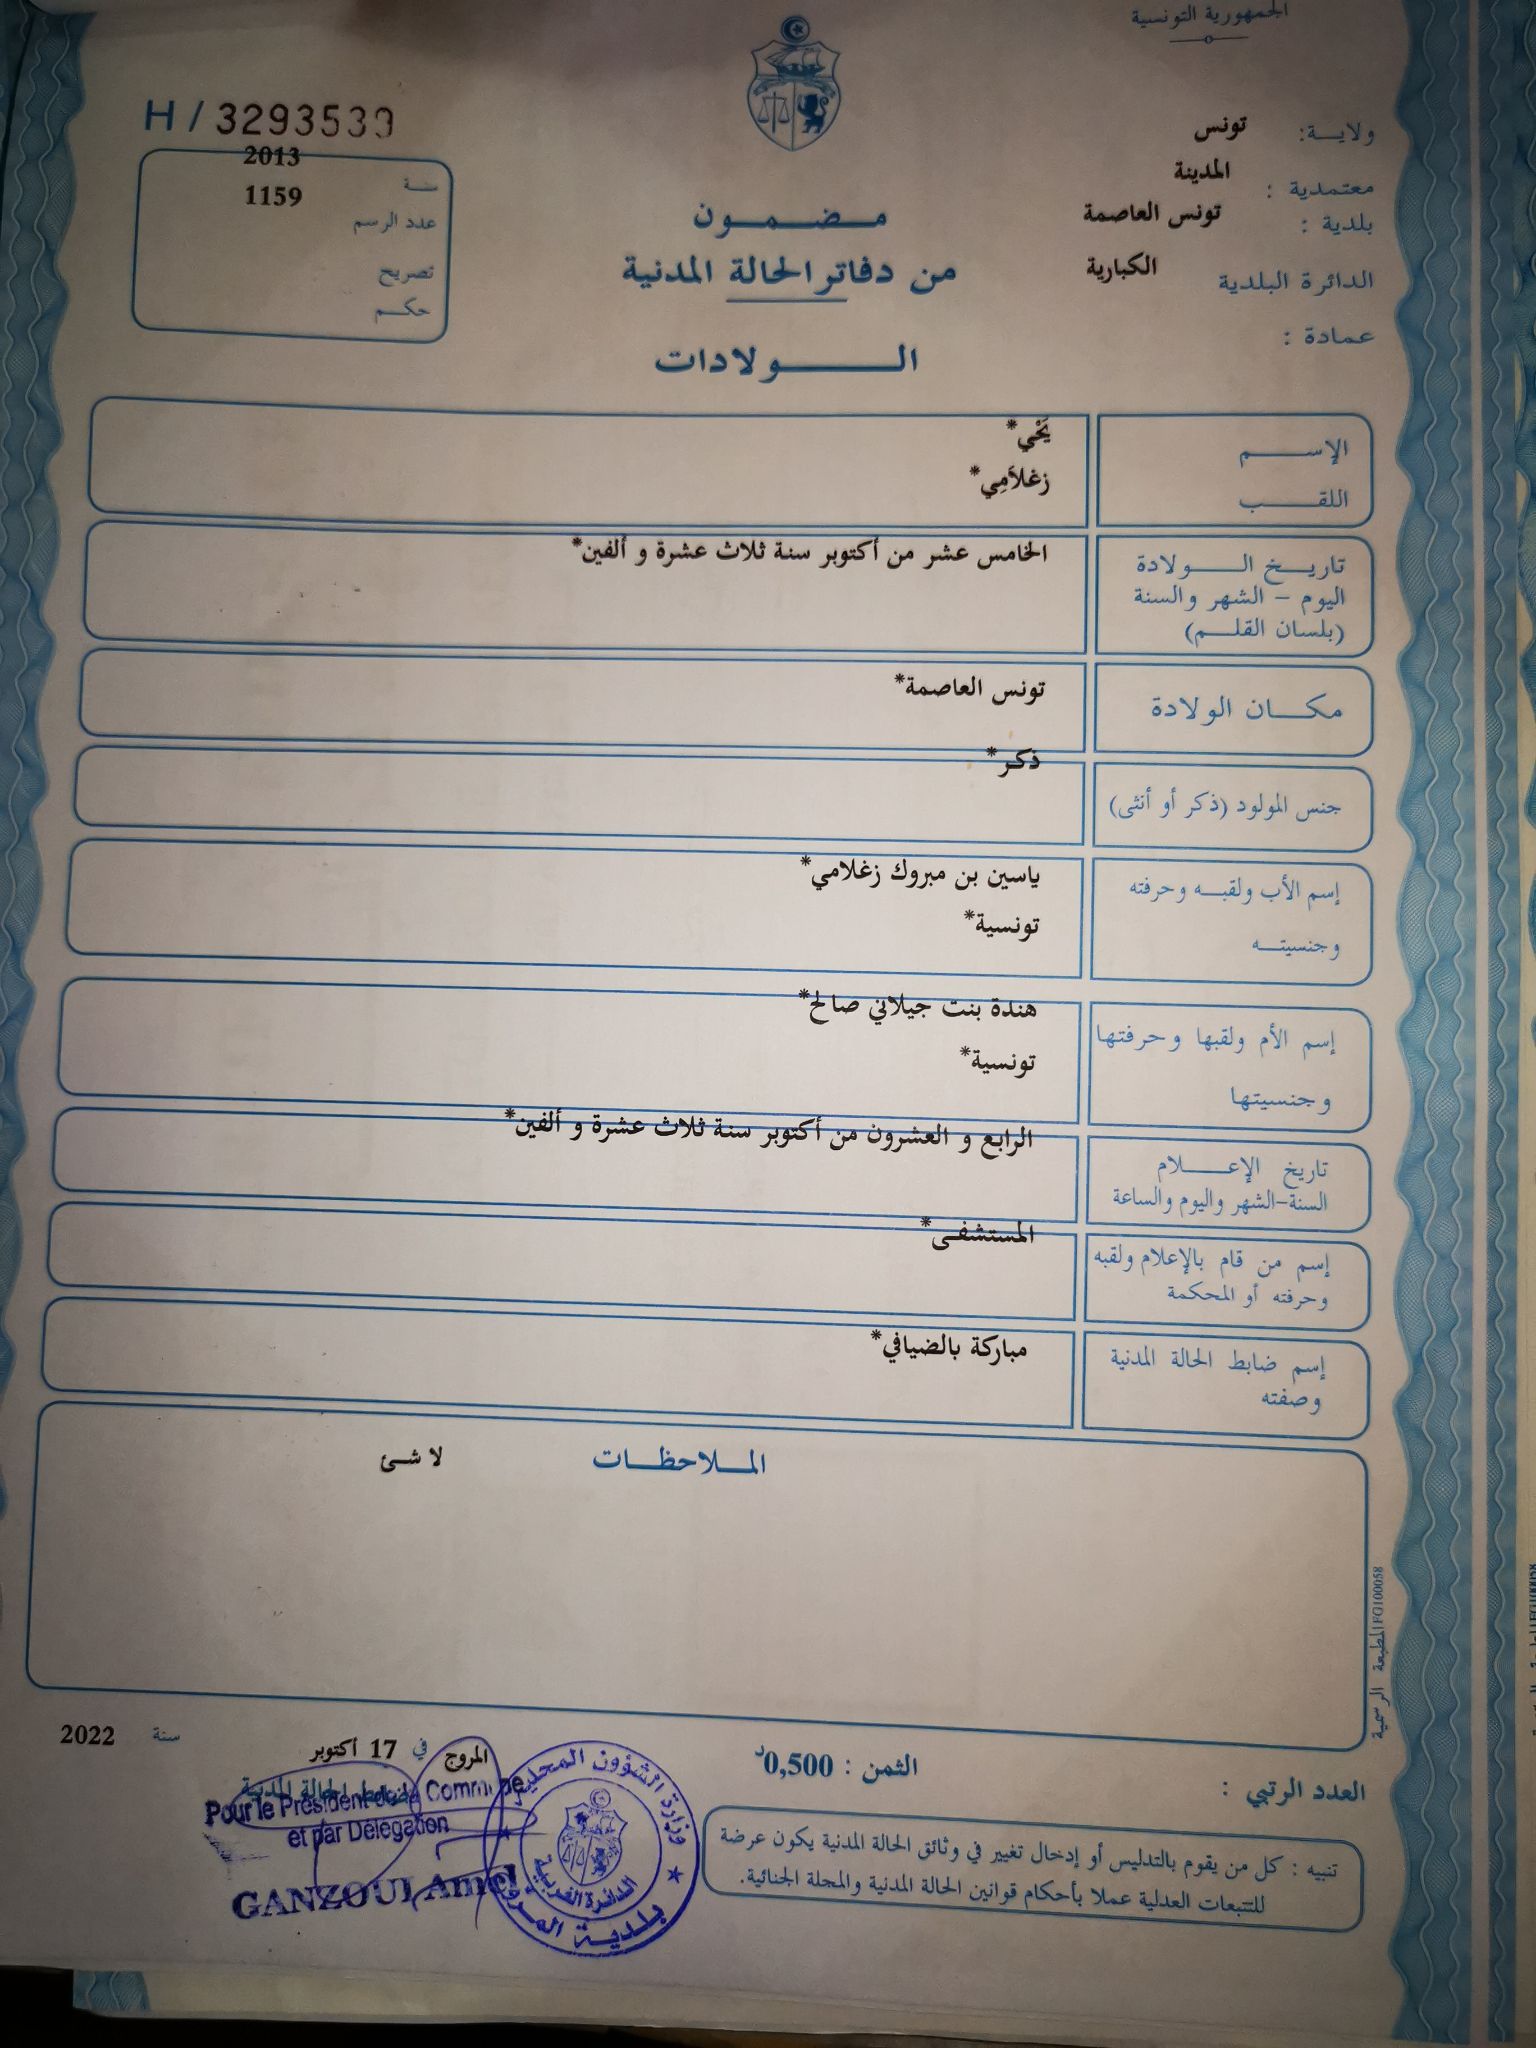 الجمهورية التونسية
H / 3293539
ولايـة: تونس
معتمدية : المدينة
بلدية : تونس العاصمة
الدائرة البلدية الكبارية
عمادة :
سنة 2013
عدد الرسم 1159
تصريح
حكم
مضمون
من دفاتر الحالة المدنية
الولادات
الإسم يَحْي*
اللقب زغلاَمِي*
تاريخ الولادة الخامس عشر من أكتوبر سنة ثلاث عشرة و ألفين*
اليوم - الشهر والسنة
(بلسان القلم)
مكان الولادة تونس العاصمة*
جنس المولود (ذكر أو أنثى) ذكر*
إسم الأب ولقبه وحرفته ياسين بن مبروك زغلامي*
وجنسيته تونسية*
إسم الأم ولقبها وحرفتها هندة بنت جيلاني صالح*
وجنسيتها تونسية*
تاريخ الإعلام الرابع و العشرون من أكتوبر سنة ثلاث عشرة و ألفين*
السنة-الشهر واليوم والساعة
إسم من قام بالإعلام ولقبه المستشفى*
وحرفته أو المحكمة
إسم ضابط الحالة المدنية مباركة بالضيافي*
وصفته
الملاحظات لا شئ
المطبعة الرسمية FG100058
المروج في 17 أكتوبر سنة 2022
ضابط الحالة المدنية
Pour le Président de la Commune
et par Délégation
GANZOUI Amel
وزارة الشؤون المحلية
الدائرة الغربية
بلدية المروج
الثمن : 0,500د
العدد الرتبي :
تنبيه : كل من يقوم بالتدليس أو إدخال تغيير في وثائق الحالة المدنية يكون عرضة
للتتبعات العدلية عملا بأحكام قوانين الحالة المدنية والمجلة الجنائية.